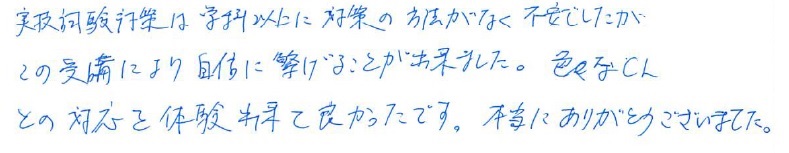 実技試験対策は学科以上に対策の方法がなく不安でしたが
この受講により自信に繋げることが出来ました。色々なCL
との対応を体験出来て良かったです。本当にありがとうございました。